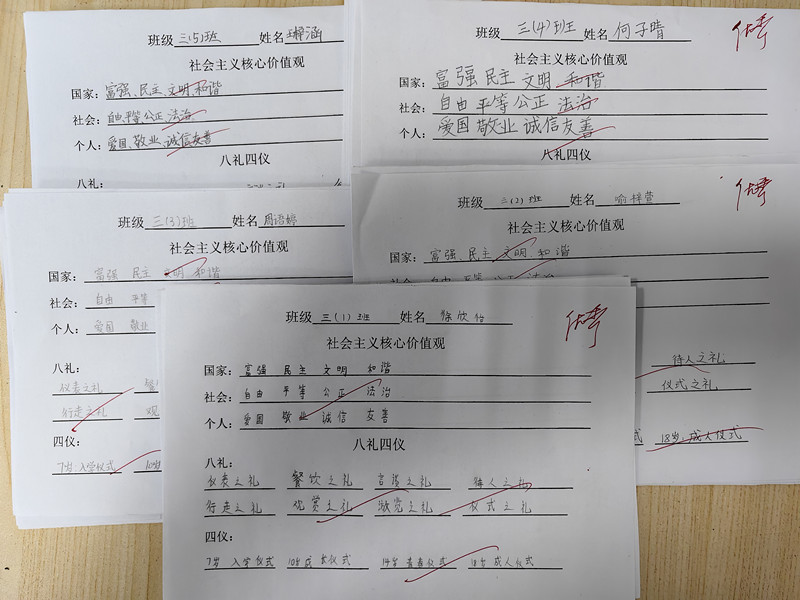 班级 三(5)班 姓名
社会主义核心价值观
国家: 富强、民主、文明、和谐
社会: 自由、平等、公正、法治
个人: 爱国、敬业、诚信友善
八礼四仪
八礼:
班级 三(4)班 姓名 何子晴
社会主义核心价值观
国家: 富强 民主 文明 和谐
社会: 自由 平等 公正 法治
个人: 爱国 敬业 诚信 友善
八礼四仪
班级 三(3)班 姓名 周语婷
社会主义核心价值观
国家: 富强 民主 文明 和谐
社会: 自由 平等
个人: 爱国 敬业
八礼:
仪表之礼
行走之礼 观
四仪:
7岁 入学仪式 10岁
班级 三(2)班 姓名 喻梓萱
社会主义核心价值观
国家: 富强、民主 文明 和谐
社会: 自由 平等 公正 法治
待人之礼
仪式之礼
18岁 成人仪式
班级 三(1)班 姓名 徐欣怡
社会主义核心价值观
国家: 富强 民主 文明 和谐
社会: 自由 平等 公正 法治
个人: 爱国 敬业 诚信 友善
八礼四仪
八礼:
仪表之礼 餐饮之礼 言谈之礼 待人之礼
行走之礼 观赏之礼 游览之礼 仪式之礼
四仪:
7岁 入学仪式 10岁 成长仪式 14岁 青春仪式 18岁 成人仪式